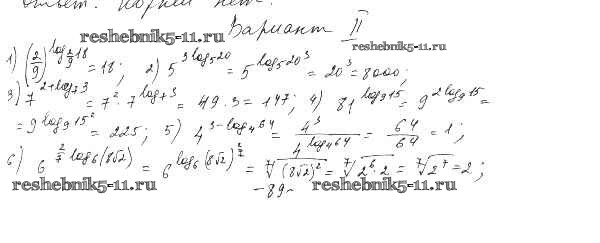 ответ. корней нет.
Вариант II
reshebnik5-11.ru
reshebnik5-11.ru
1) (2/9)^{log_{2/9} 18} = 18; 2) 5^{3 log_5 20} = 5^{log_5 20^3} = 20^3 = 8000;
3) 7^{2+log_7 3} = 7^2 · 7^{log_7 3} = 49 · 3 = 147; 4) 81^{log_9 15} = 9^{2 log_9 15} =
= 9^{log_9 15^2} = 225; 5) 4^{3-log_4 64} = 4^3/4^{log_4 64} = 64/64 = 1;
6) 6^{2/7 log_6 (8√2)} = 6^{log_6 (8√2)^{2/7}} = ⁷√((8√2)^2) = ⁷√(2^6·2) = ⁷√(2^7) = 2;
reshebnik5-11.ru
-89-
reshebnik5-11.ru